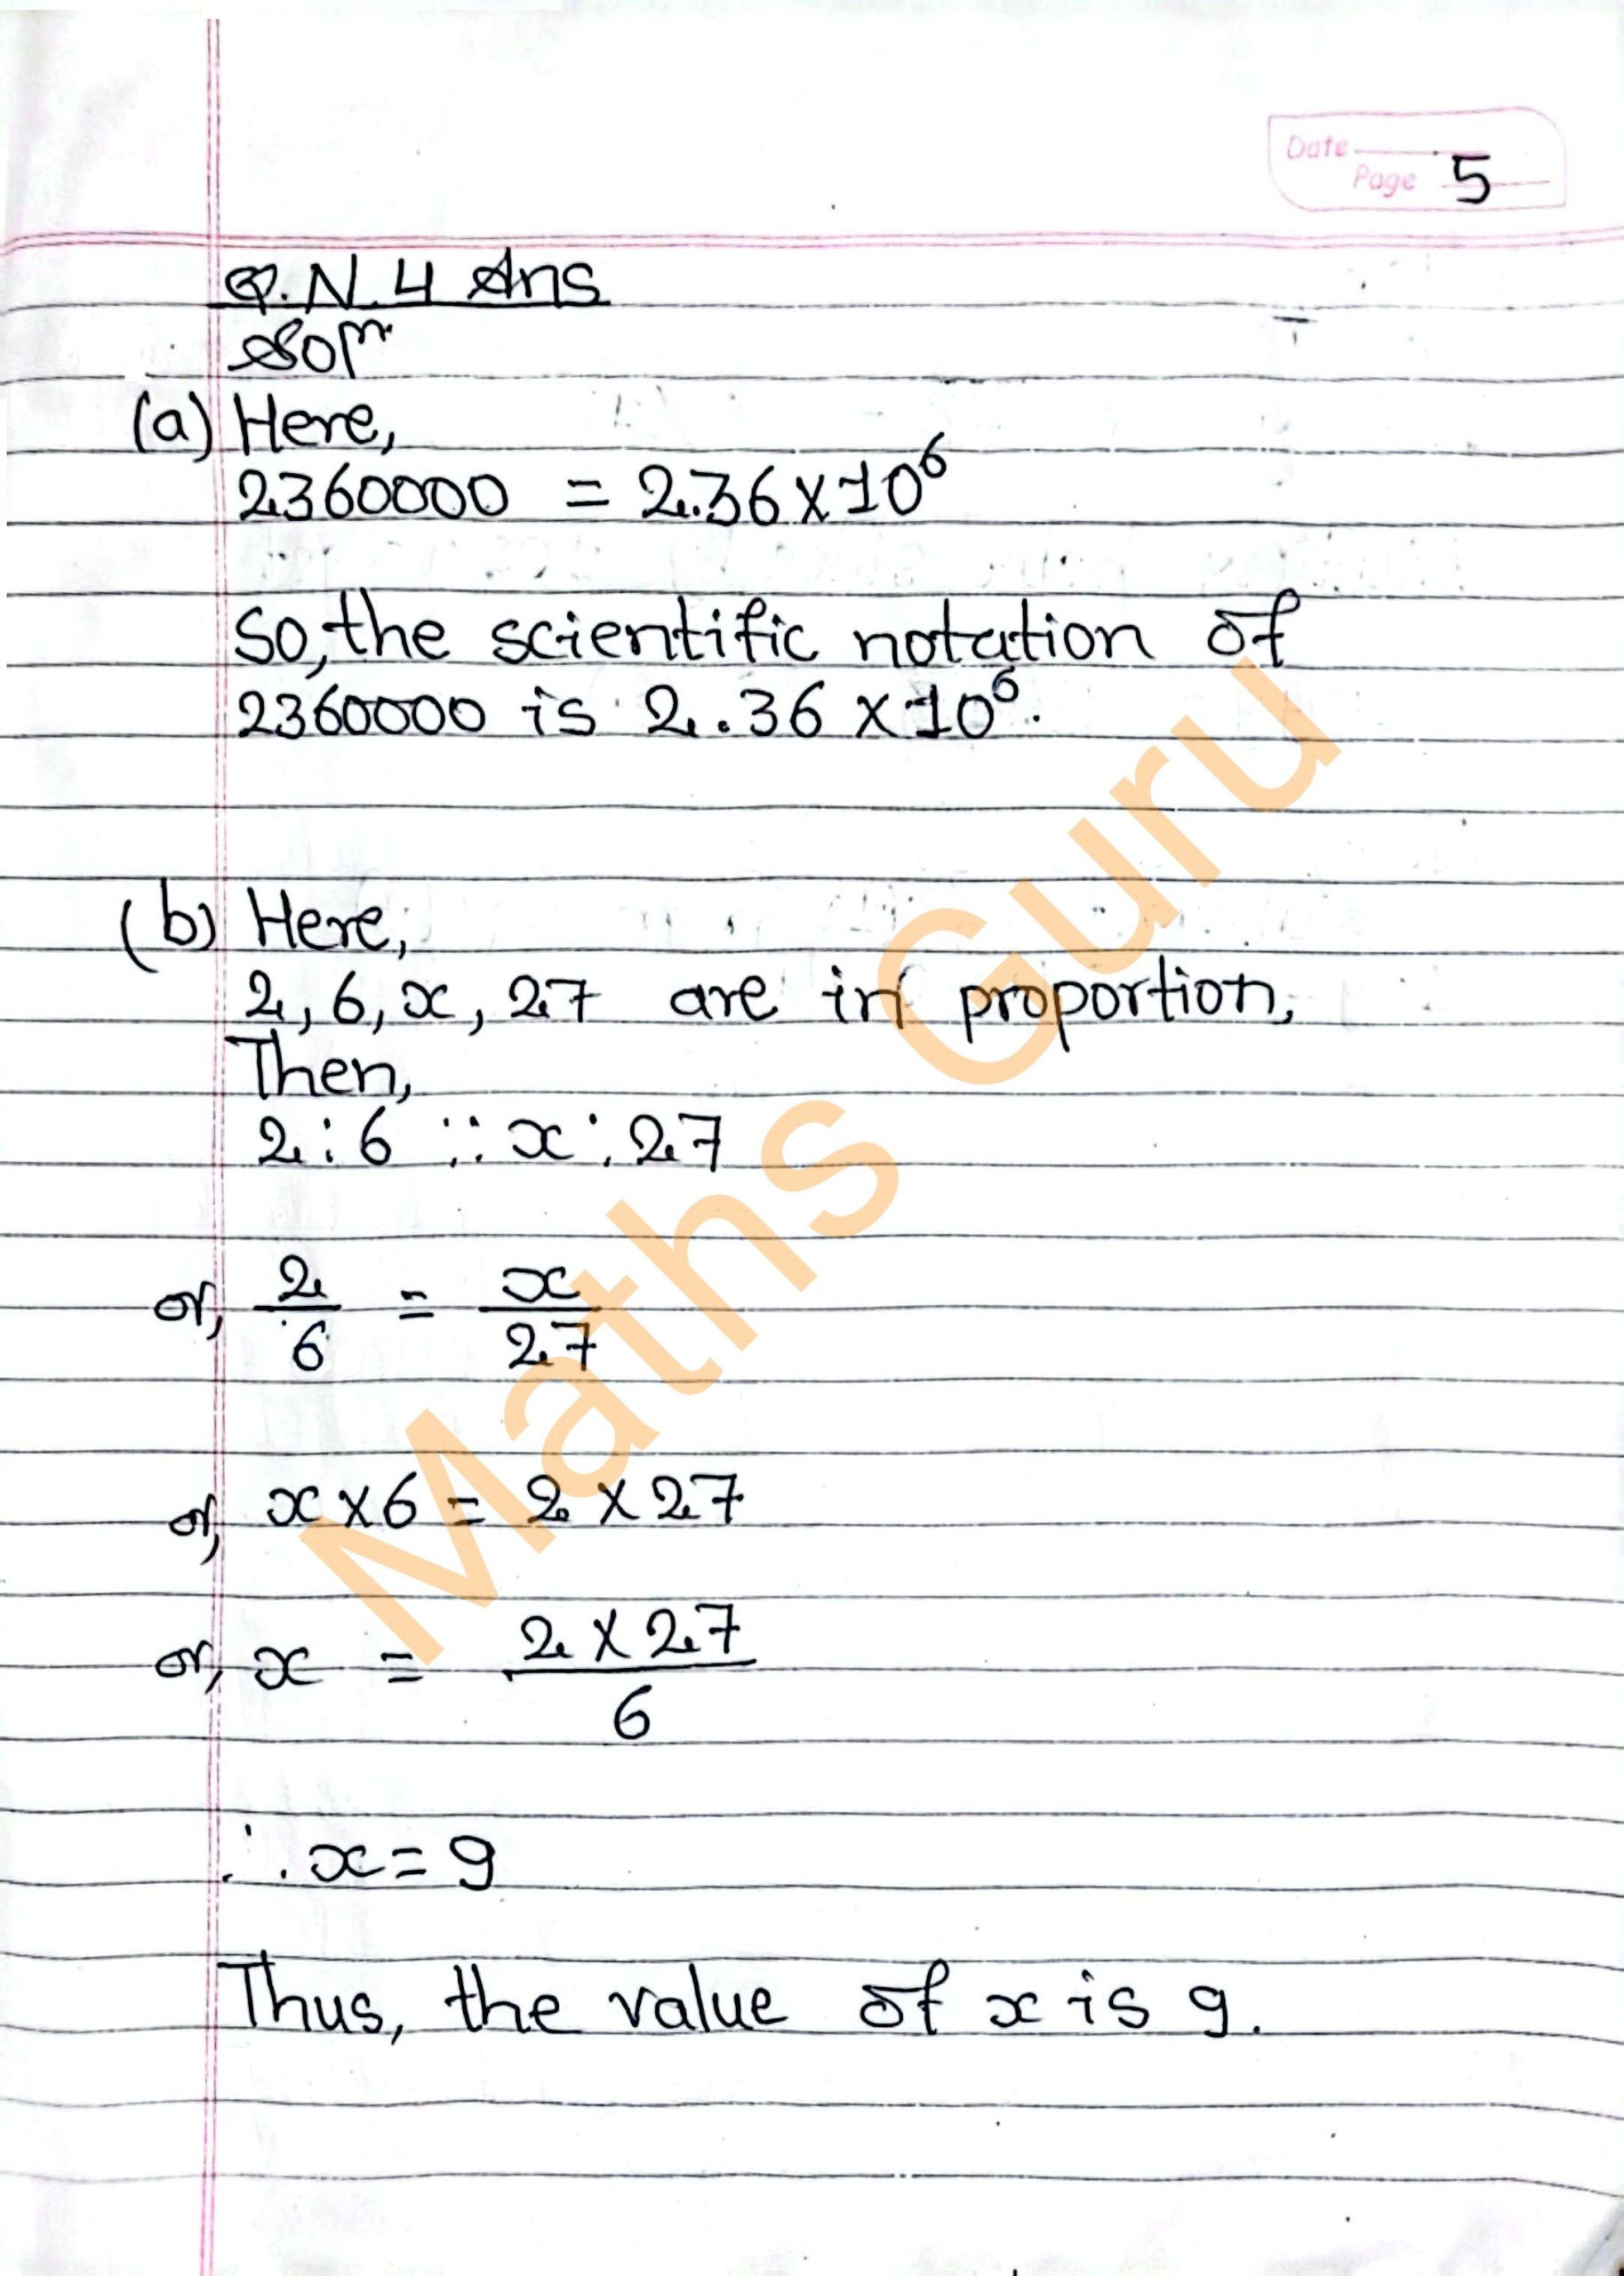 Date
Page 5
Q.N.4 Ans
Solⁿ.
(a) Here,
2360000 = 2.36×10⁶
So, the scientific notation of
2360000 is 2.36 ×10⁶.
(b) Here,
2, 6, x, 27 are in proportion,
Then,
2:6 :: x:27
or, 2/6 = x/27
or, x×6 = 2×27
or, x = 2×27/6
∴ x = 9
Thus, the value of x is 9.
Maths Guru